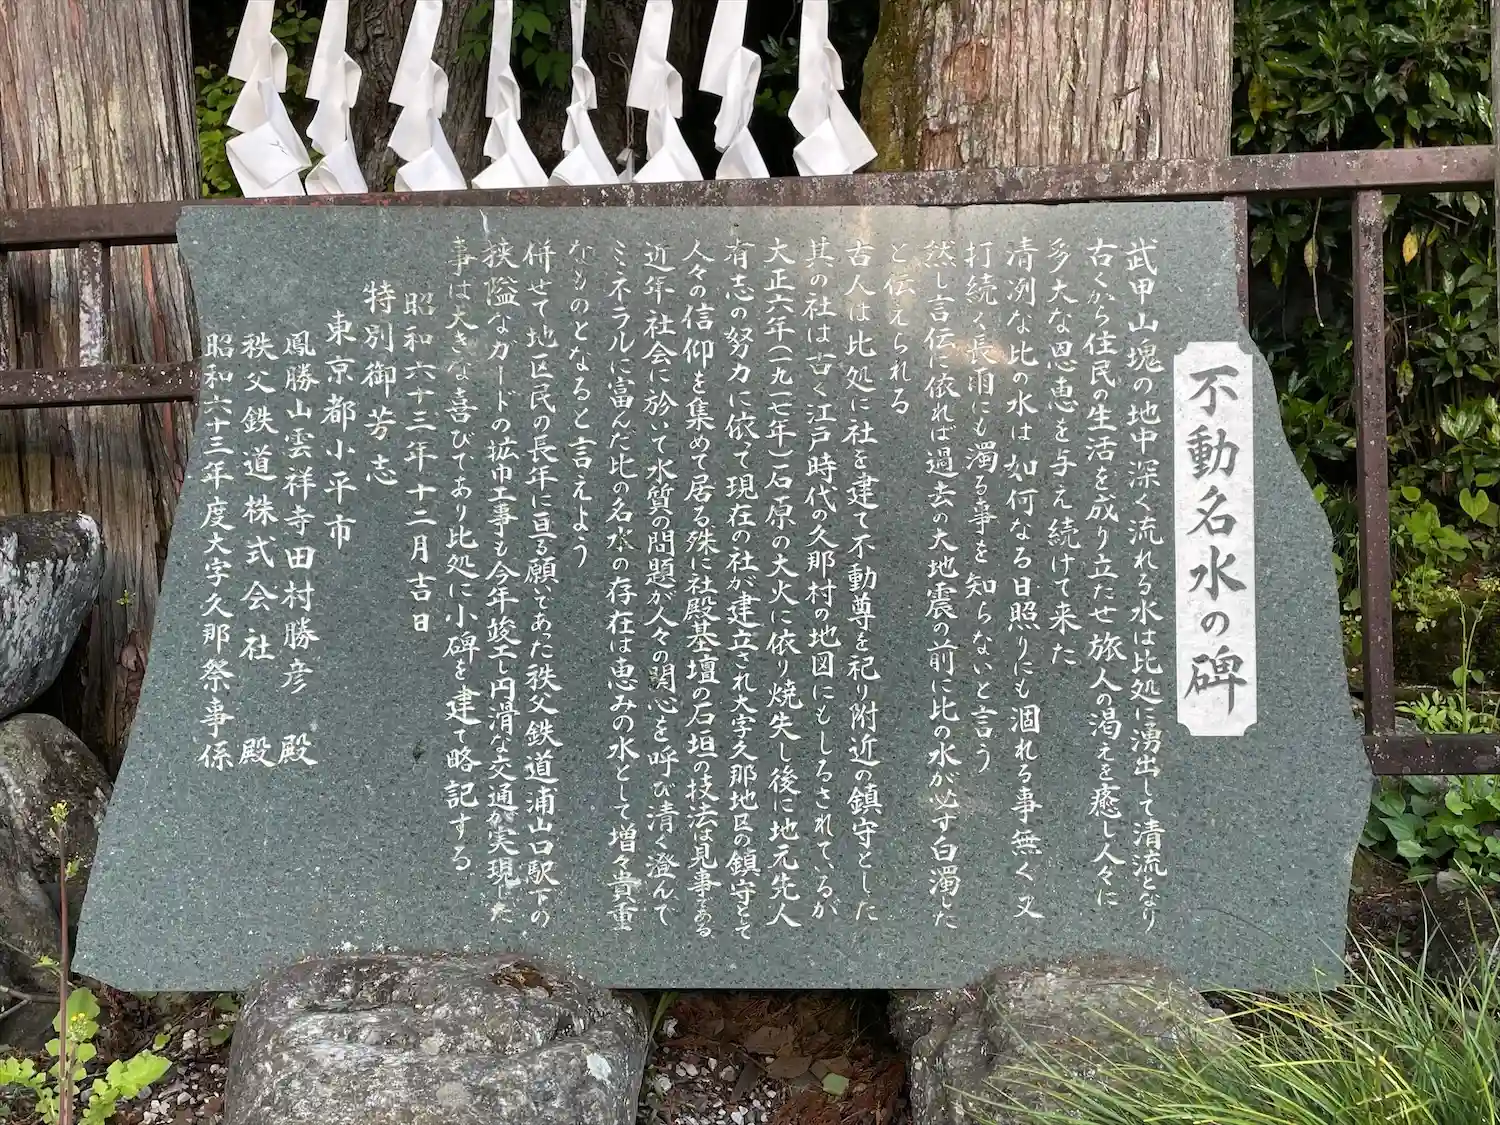 不動名水の碑
武甲山塊の地中深く流れる水は比処に湧出して清流となり
古くから住民の生活を成り立たせ旅人の渇えを癒し人々に
多大な恩恵を与え続けて来た
清冽な比の水は如何なる日照りにも涸れる事無く又
打続く長雨にも濁る事を知らないと言う
然し言伝に依れば過去の大地震の前に比の水が必ず白濁した
と伝えられる
古人は比処に社を建て不動尊を祀り附近の鎮守とした
其の社は古く江戸時代の久那村の地図にもしるされているが
大正六年(一九一七年)石原の大火に依り焼失し後に地元先人
有志の努力に依て現在の社が建立され大字久那地区の鎮守とて
人々の信仰を集めて居る殊に社殿基壇の石垣の技法は見事である
近年社会に於いて水質の問題が人々の関心を呼び清く澄んで
ミネラルに富んだ比の名水の存在は恵みの水として増々貴重
なものとなると言えよう
併せて地区民の長年に亘る願いであった秩父鉄道浦山口駅下の
狭隘なガードの拡巾工事も今年竣工し円滑な交通が実現した
事は大きな喜びであり比処に小碑を建て略記する
昭和六十三年十二月吉日
特別御芳志
東京都小平市
鳳勝山雲祥寺田村勝彦 殿
秩父鉄道株式会社 殿
昭和六十三年度大字久那祭事係